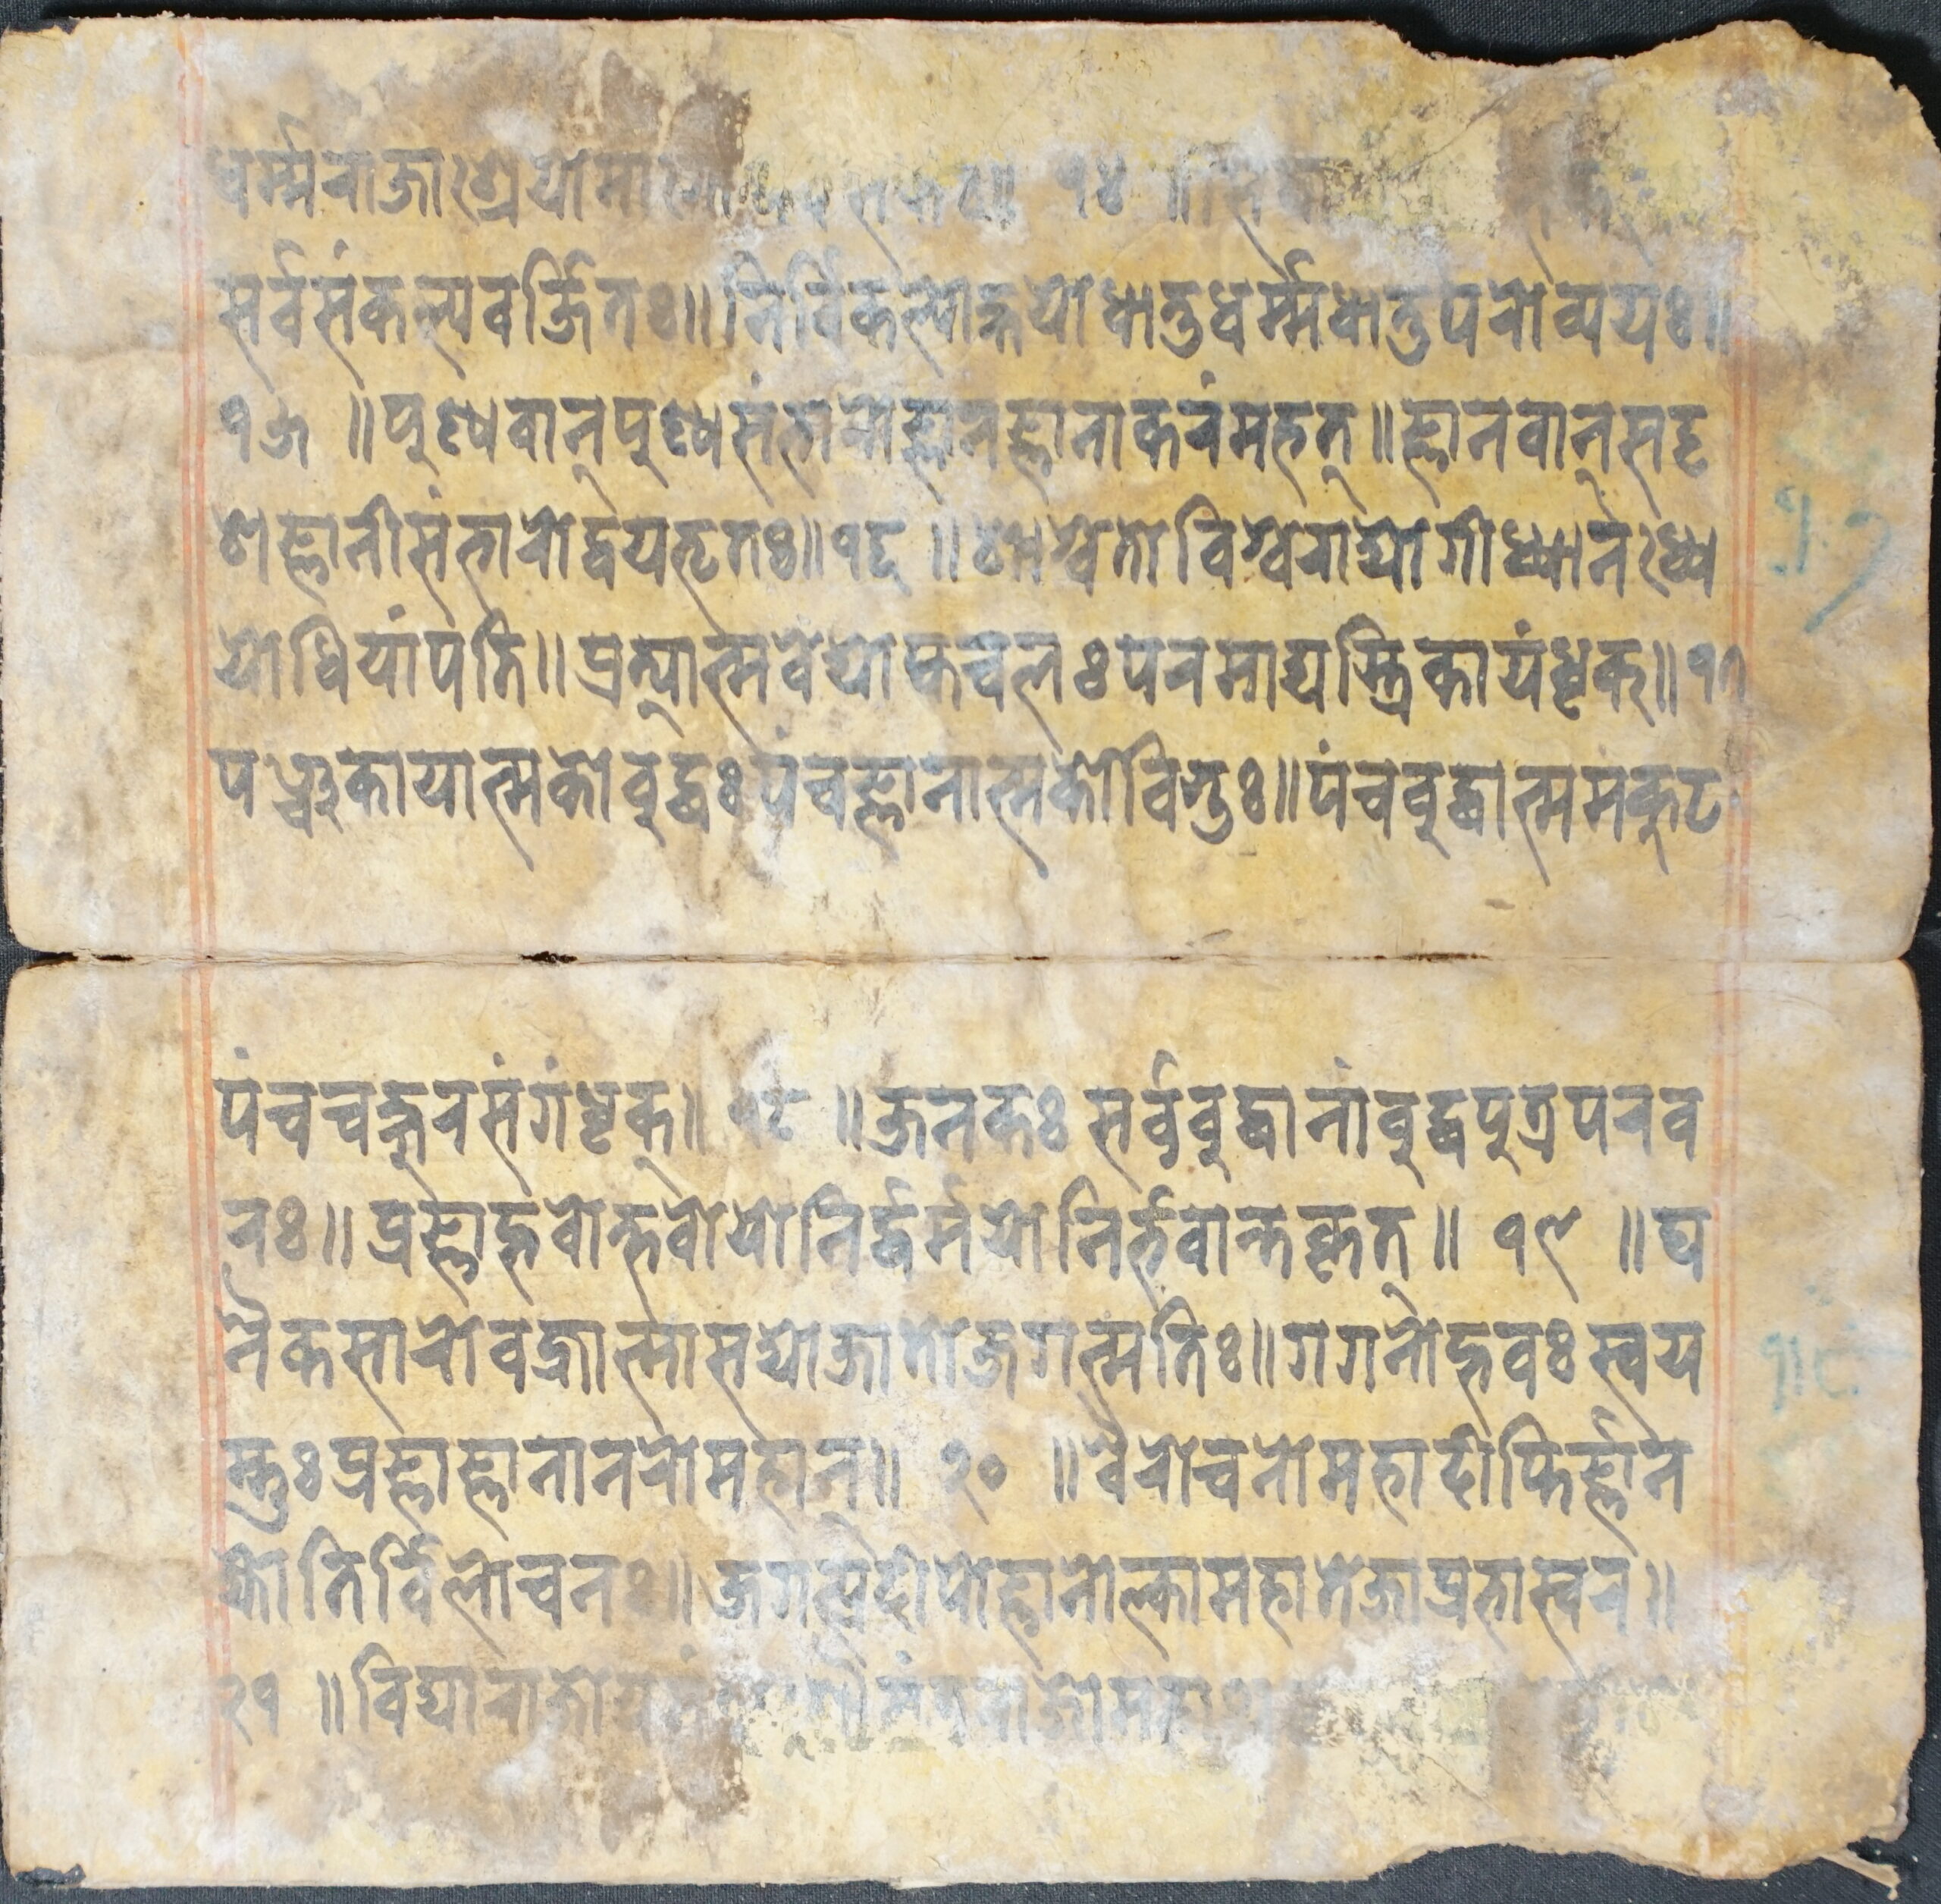 धर्म्मराजाश्रेयोमा ॥ १४ ॥
सर्वसंकल्पवर्जितः॥ निर्विकल्पोक्षयोधातुधर्म्मधातुपरोव्ययः॥
१५ ॥ पुण्यवान्पुण्यसंभारोज्ञानज्ञानाकरंमहत्॥ ज्ञानवान्सदृ
शज्ञानीसंभारोद्वयभृतः॥ १६ ॥ शाश्वेतोविश्वेराद्योगीध्यानंध्य
योधियांपति॥ प्रत्यात्मवेद्योह्यचलः परमाद्यस्त्रिकायंधृक्॥ १७
पञ्चकायात्मकोबुद्धः पंचज्ञानात्मकोविभुः॥ पंचबुद्धात्ममंकुट
पंचचक्षुरसंगंधृक्॥ १८ ॥ जनकः सर्वबुद्धानांबुद्धपुत्रपरव
रः॥ प्रज्ञाद्भवोभ्भवोयोनिर्द्धर्मयोनिर्भवान्तकृत्॥ १९ ॥ घ
नैकसारोवज्रात्मासद्योजातोजगत्मतिः॥ गगनोद्भवः स्वय
म्भुः प्रज्ञाज्ञानानरोमहान्॥ २० ॥ वैरोचनोमहादीप्तिर्ज्ञान
ज्योतिर्विलोचनः॥ जगत्प्रदीपोज्ञानोल्कामहातेजाप्रभास्वर॥
२१ ॥ विद्याराजो